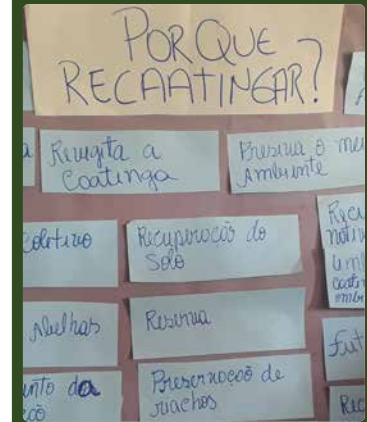 POR QUE
RECAATINGAR?
Revigita a
Caatinga
Preserva o mei
Ambiente
Coletivo
Recuperação do
Solo
Abelhas
Reserva
Fut
ento da
Preservação de
riachos
Rec